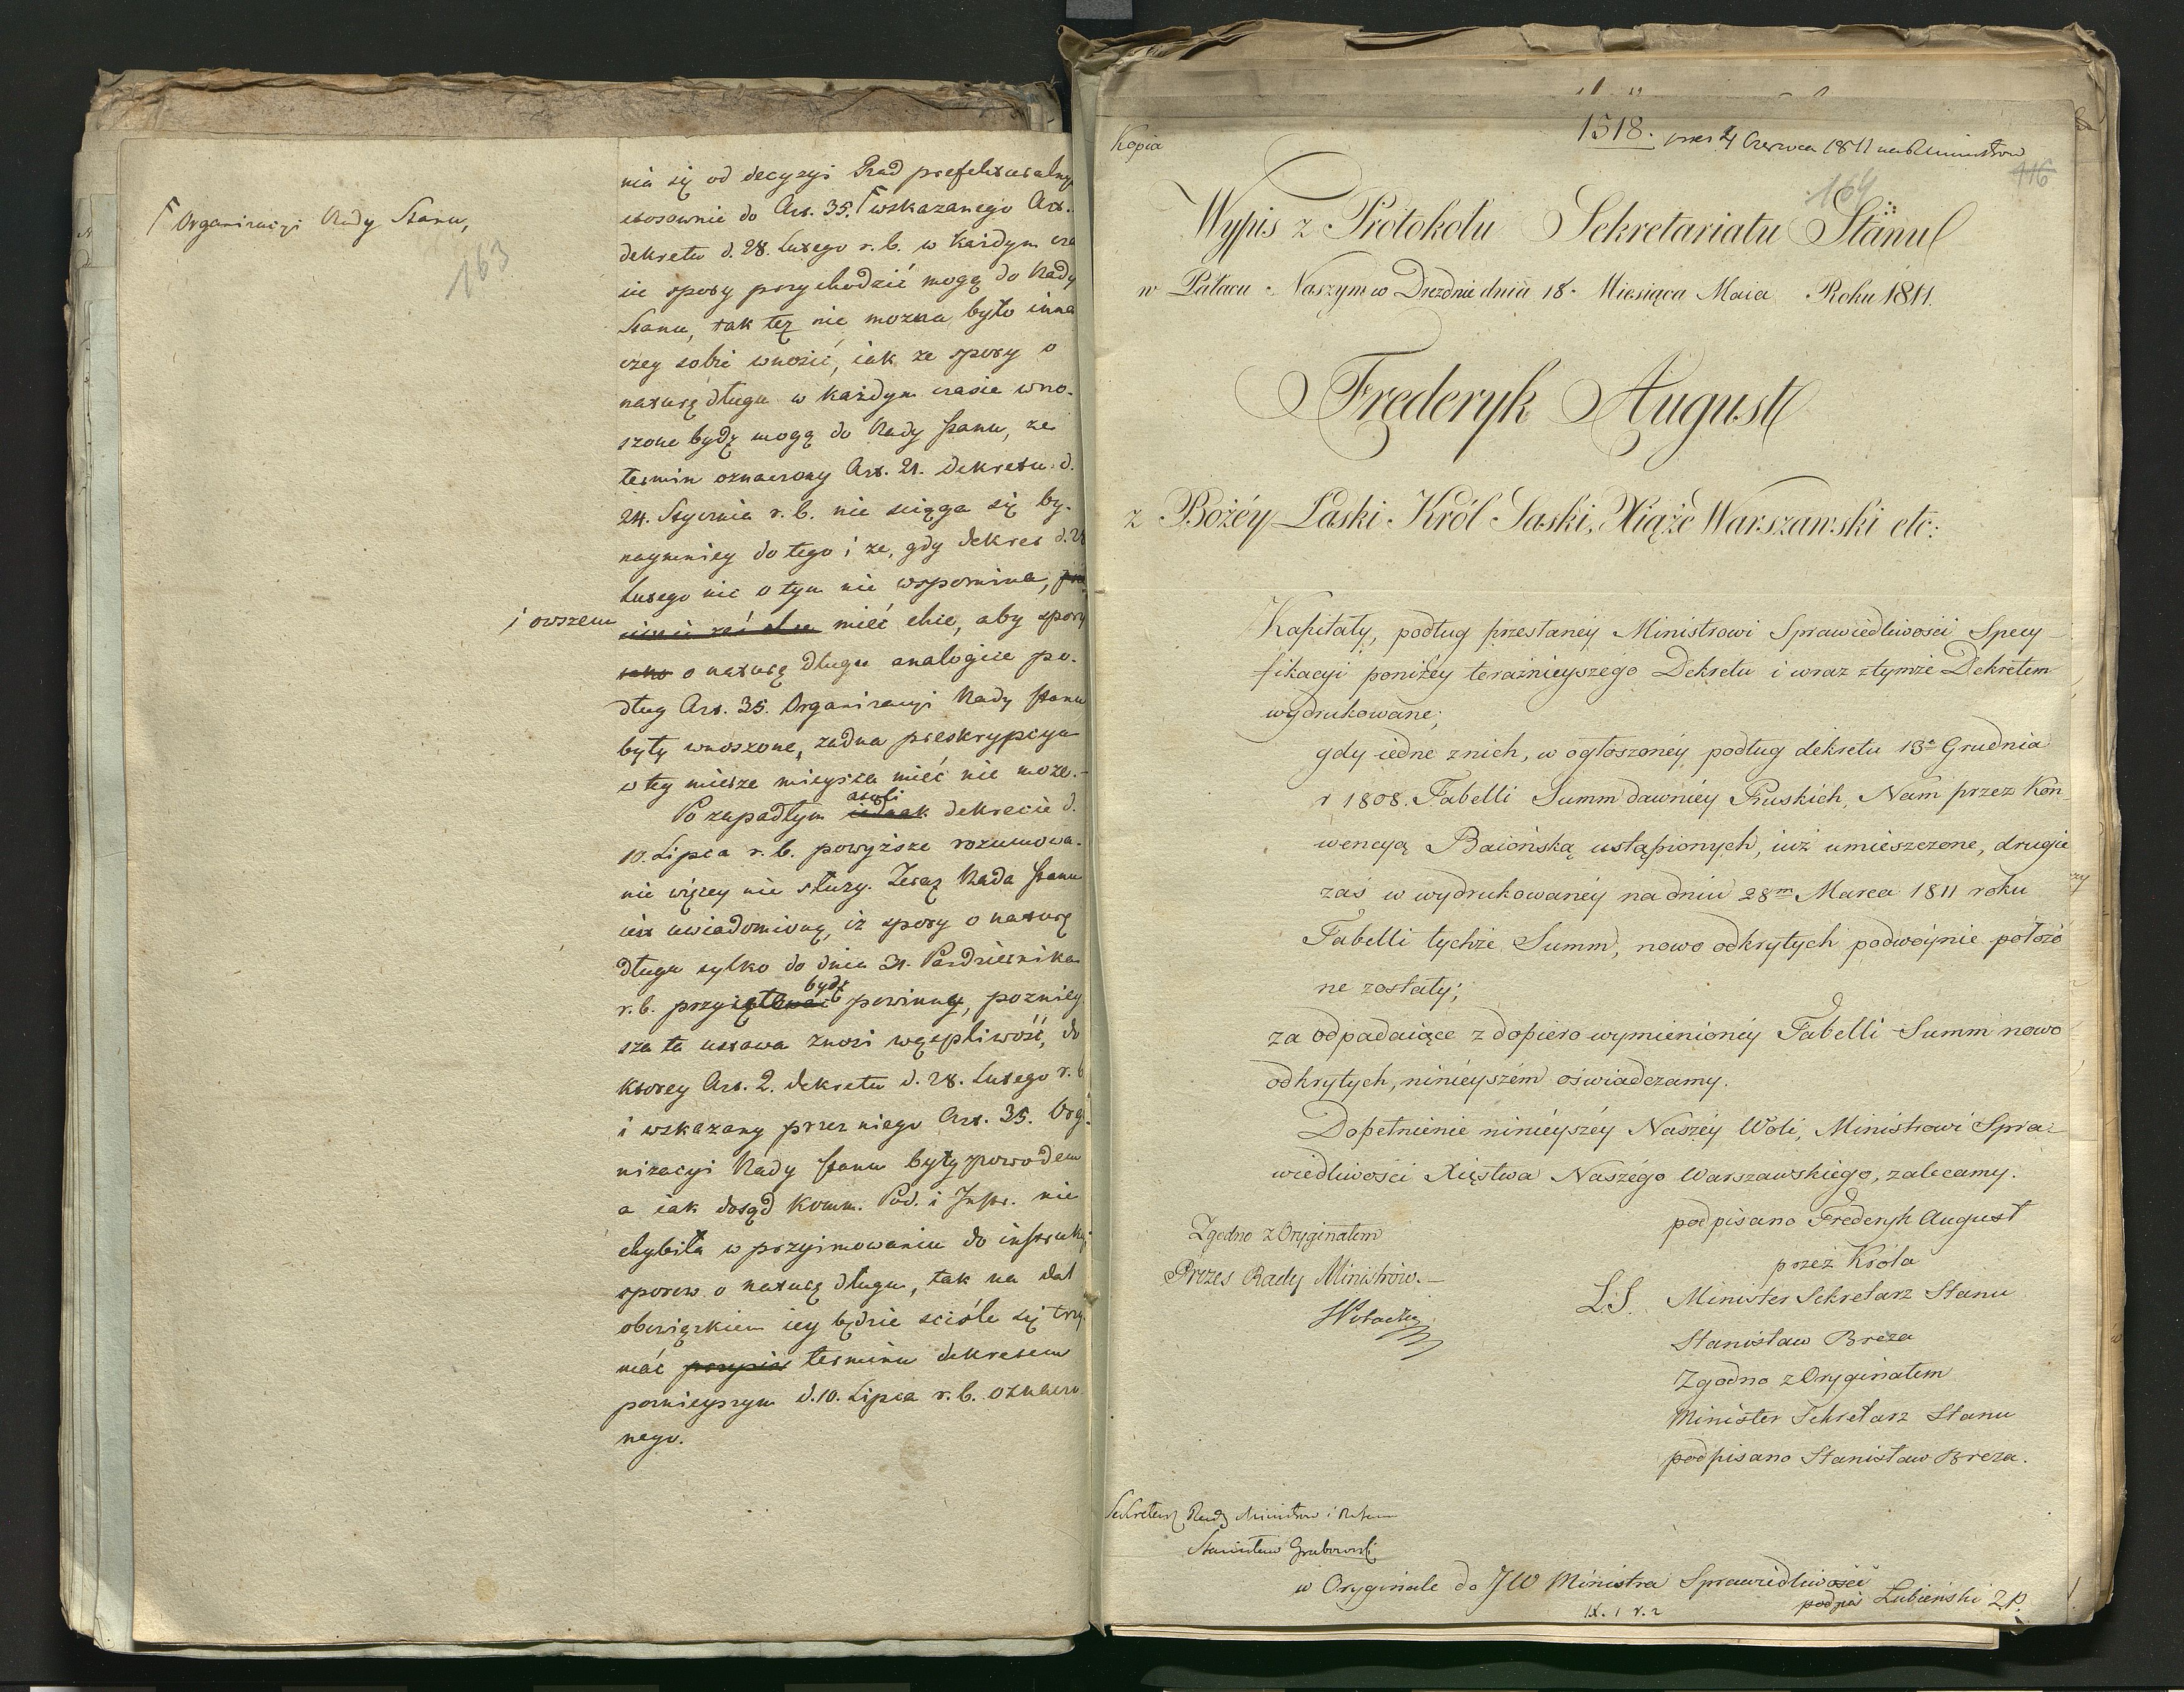 Γ Organizacyi Rady Stanu,
163
nia się od decyzyi Rad prefekturalny
stosownie do Art. 35. Γ wskazanego Art.
dekretu d. 28. Lutego r. b. w każdym cza
sie spory przychodzić mogą do Rady
Stanu, tak też nie można było ina
czey sobie wnosić, iak że spory o
naturę długu w każdym czasie wno-
szone bydź mogą do Rady Stanu, że
termin oznaczony Art. 21. Dekretu d.
24. Stycznia r. b. nie sciąga się by-
naymniey do tego i że, gdy dekret d. 28
Lutego nic o tym nie wspomina,
i owszem mieć chce, aby spory
o naturę długu analogice po-
dług Art. 35. Organizacyi Rady Stanu
były wnoszone, żadna preskrypcya
w tey mierze mieysca mieć nie może.-
Po zapadłym iednak dekrecie d.
10. Lipca r. b. powyższe rozumowa-
nie więcey nie służy. Teraz Rada Stanu
iest uwiadomiona, iż spory o naturę
długu tylko do dnia 31. Pazdziernika
bydź
r. b. powinny, poznie
sza ta ustawa znosi wątpliwość, do
ktorey Art. 2. dekretu d. 28. Lutego r. b
i wskazany przez niego Art. 35. Orga
nizacyi Rady Stanu były powodem
a iak dotąd Komm. Pod. i Instr. nie
chybiła w przyimowaniu do instrukcyi
sporow o naturę długu, tak na dal
obowiązkiem iey będzie sciśle się trzy
mać terminu dekretem
poznieyszym d. 10. Lipca r. b. oznaczo
nego.
Kopia
1518. pres 4 Czerwca 1811 na R Ministrow
116
164
Wypis z Protokołu Sekretariatu Stanu
w Pałacu Naszym w Dreźnie dnia 18. Miesiąca Maia Roku 1811.
Frederyk August
z Bożéy Łaski Król Saski, Xiąże Warszawski etc:
Kapitały, podług przesłanéy Ministrowi Sprawiedliwości Specy-
fikacyi poniżéy teraźnieyszego Dekretu i wraz z tymże Dekretem
wydrukowane;
gdy iedne z nich, w ogłoszonéy podług dekretu 13º Grudnia
r 1808. Tabelli Summ dawniéy Pruskich, Nam przez Kon-
wencyą Baiońską ustąpionych, iuż umieszczone, drugie
zaś w wydrukowanéy na dniu 28m Marca 1811 roku
Tabelli tychże Summ, nowo odkrytych podwoynie położo
ne zostały;
za odpadaiące z dopiero wymienionéy Tabelli Summ nowo
odkrytych, ninieyszém oświadczamy.
Dopełnienie ninieyszéy Naszéy Woli, Ministrowi Spra-
wiedliwości Xięstwa Naszégo Warszawskiégo, zalecamy.
podpisano Frederyk August
przez Króla
L.S. Minister Sekretarz Stanu
Stanisław Breza
Zgodno z Oryginałem
Minister Sekretarz Stanu
podpisano Stanisław Breza.
Zgodno z Oryginałem
Prezes Rady Ministrów.-
Sekretarz Rady Ministrow i
Stanisław Grabowski
w Oryginale do JW Ministra Sprawiedliwości
podpis Łubieński
IX. 1 r. 2